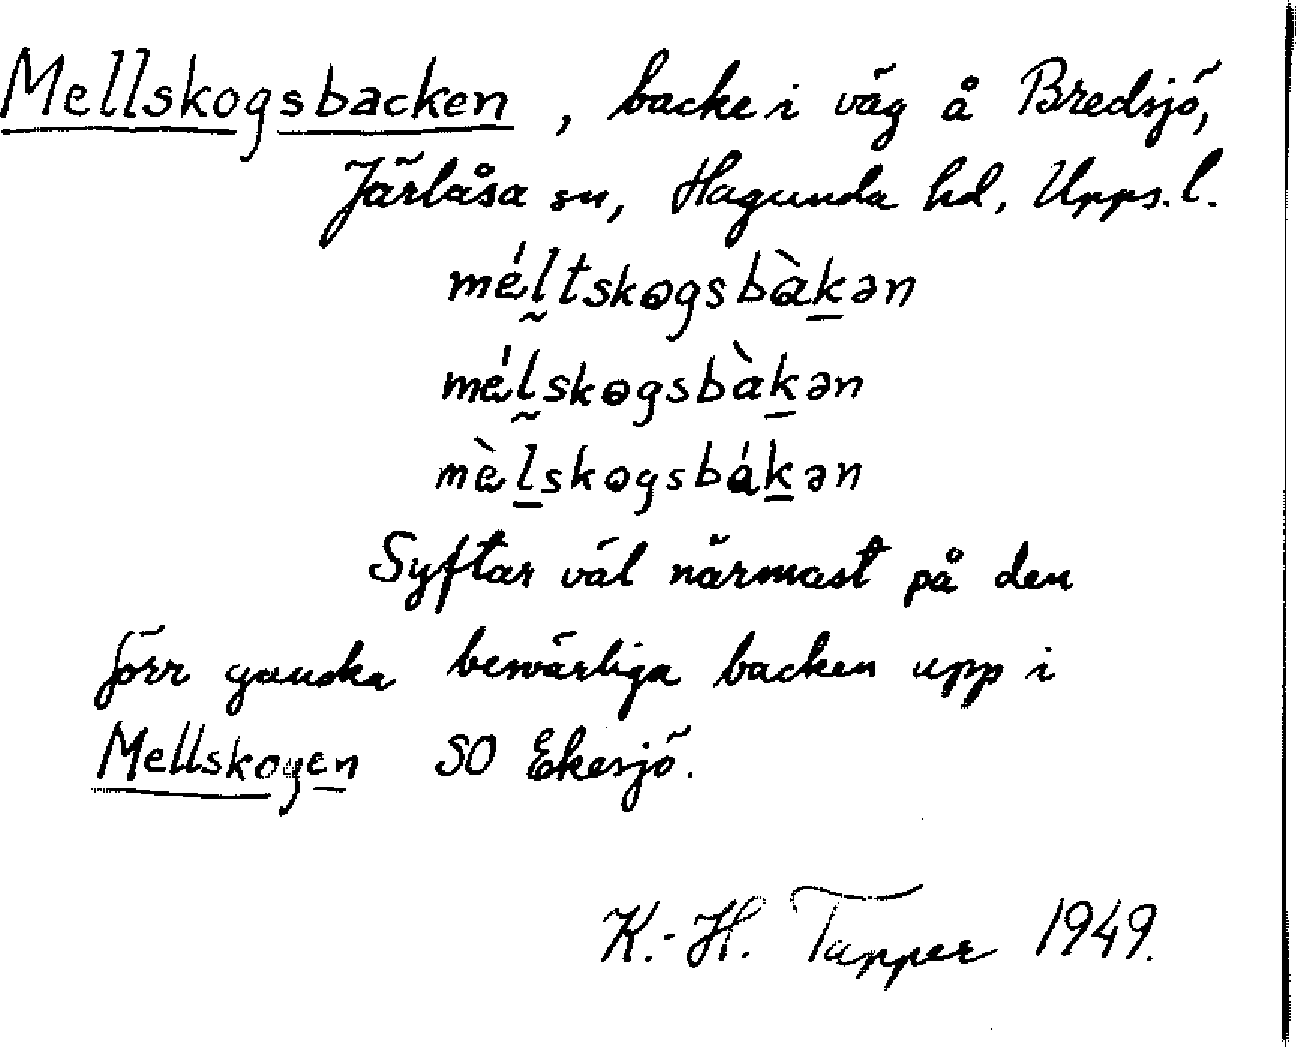 Mellskogsbacken, backe i väg å Bredsjö,
Järlåsa sn, Hagunda hd, Upps. l.
mél̰tskogsbàk̲ən
mél̰skogsbàk̲ən
mèl̲skogsbák̲ən
Syftar väl närmast på den
förr ganska besvärliga backen upp i
Mellskogen SO Ekesjö.
K.-H. Tapper 1949.